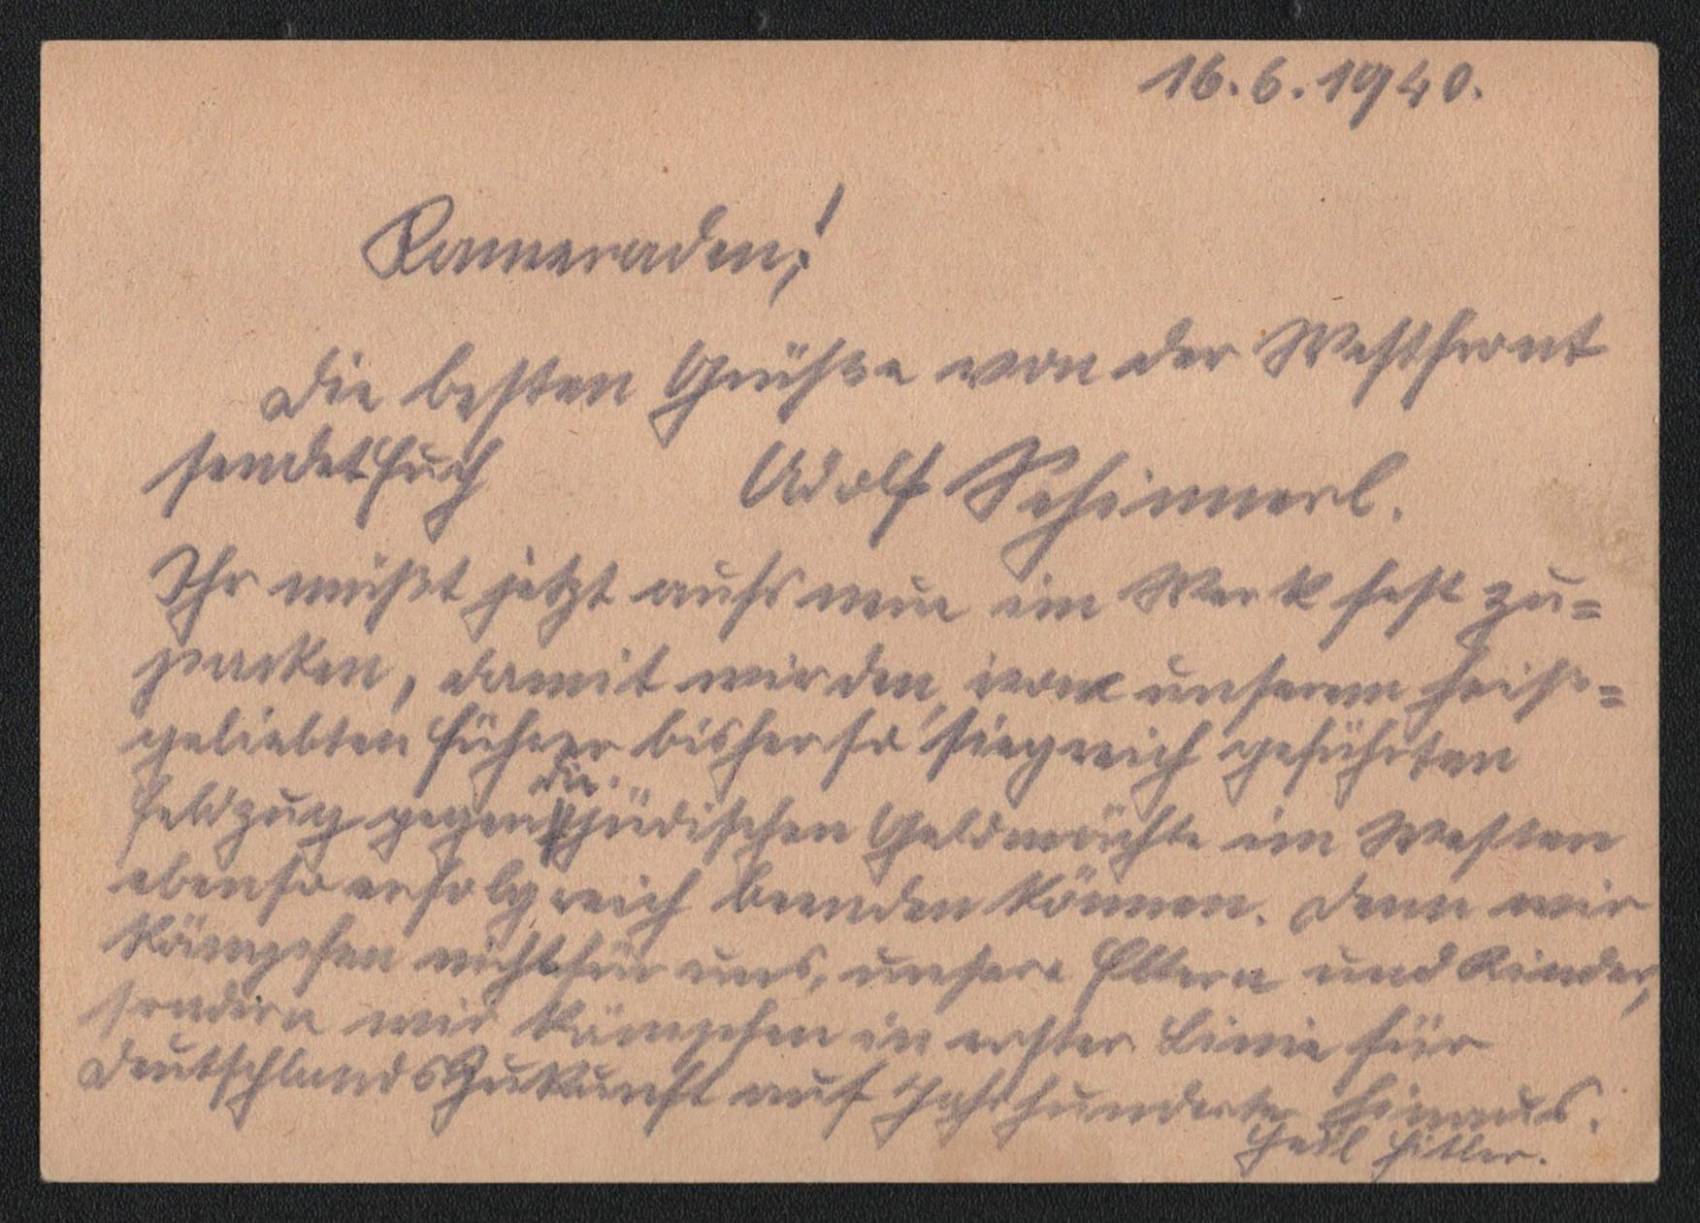 16.6.1940.
Kameraden!
Die besten Grüße von der Westfront
sendet Euch Adolf Schimmerl.
Ihr müßt jetzt aufs neue im Werk fest zu=
packen, damit wir den, von unserem heiß=
geliebten Führer bisher so siegreich geführten
die
Feldzug gegen jüdischen Geldmächte im Westen
ebenso erfolgreich beenden können. Denn wir
kämpfen nicht für uns, unsere Eltern und Kinder,
sondern wir kämpfen in erster Linie für
Deutschlands Zukunft auf Jahrhunderte hinaus.
Heil Hitler.